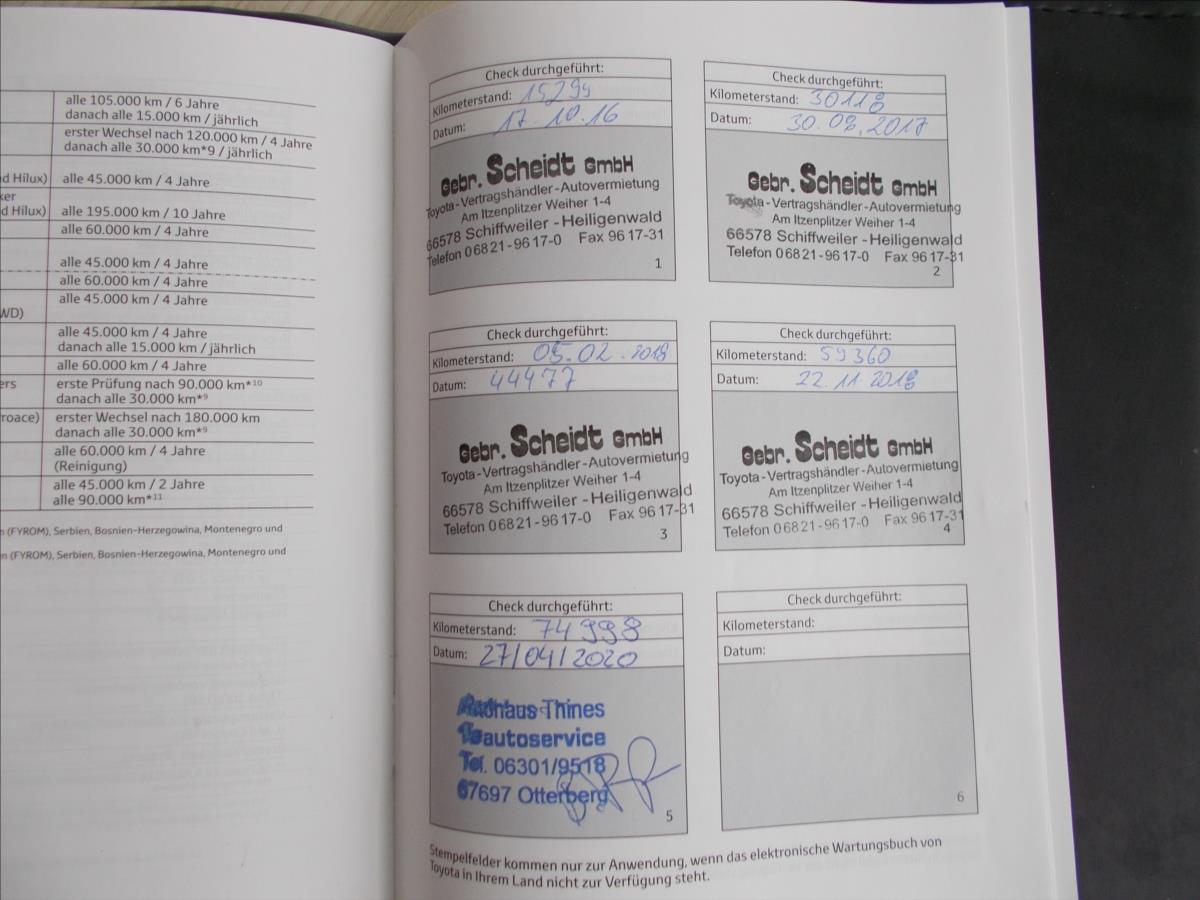 alle 105.000 km / 6 Jahre
danach alle 15.000 km / jährlich
erster Wechsel nach 120.000 km / 4 Jahre
danach alle 30.000 km*9 / jährlich
d Hilux) alle 45.000 km / 4 Jahre
ker
d Hilux) alle 195.000 km / 10 Jahre
alle 60.000 km / 4 Jahre
alle 45.000 km / 4 Jahre
alle 60.000 km / 4 Jahre
alle 45.000 km / 4 Jahre
WD)
alle 45.000 km / 4 Jahre
danach alle 15.000 km / jährlich
alle 60.000 km / 4 Jahre
ers erste Prüfung nach 90.000 km*10
danach alle 30.000 km*9
roace) erster Wechsel nach 180.000 km
danach alle 30.000 km*9
alle 60.000 km / 4 Jahre
(Reinigung)
alle 45.000 km / 2 Jahre
alle 90.000 km*11
n (FYROM), Serbien, Bosnien-Herzegowina, Montenegro und
n (FYROM), Serbien, Bosnien-Herzegowina, Montenegro und
Check durchgeführt:
Kilometerstand: 15299
Datum: 17.10.16
Gebr. Scheidt GmbH
Toyota-Vertragshändler-Autovermietung
Am Itzenplitzer Weiher 1-4
66578 Schiffweiler-Heiligenwald
Telefon 06821-9617-0 Fax 9617-31
1
Check durchgeführt:
Kilometerstand: 30118
Datum: 30.08.2017
Gebr. Scheidt GmbH
Toyota-Vertragshändler-Autovermietung
Am Itzenplitzer Weiher 1-4
66578 Schiffweiler-Heiligenwald
Telefon 06821-9617-0 Fax 9617-31
2
Check durchgeführt:
Kilometerstand: 05.02.2018
Datum: 44477
Gebr. Scheidt GmbH
Toyota-Vertragshändler-Autovermietung
Am Itzenplitzer Weiher 1-4
66578 Schiffweiler-Heiligenwald
Telefon 06821-9617-0 Fax 9617-31
3
Check durchgeführt:
Kilometerstand: 59360
Datum: 22.11.2018
Gebr. Scheidt GmbH
Toyota-Vertragshändler-Autovermietung
Am Itzenplitzer Weiher 1-4
66578 Schiffweiler-Heiligenwald
Telefon 06821-9617-0 Fax 9617-31
4
Check durchgeführt:
Kilometerstand: 74998
Datum: 27/04/2020
Thines
autoservice
Tel. 06301/9518
67697 Otterberg
5
Check durchgeführt:
Kilometerstand:
Datum:
6
Stempelfelder kommen nur zur Anwendung, wenn das elektronische Wartungsbuch von
Toyota in Ihrem Land nicht zur Verfügung steht.